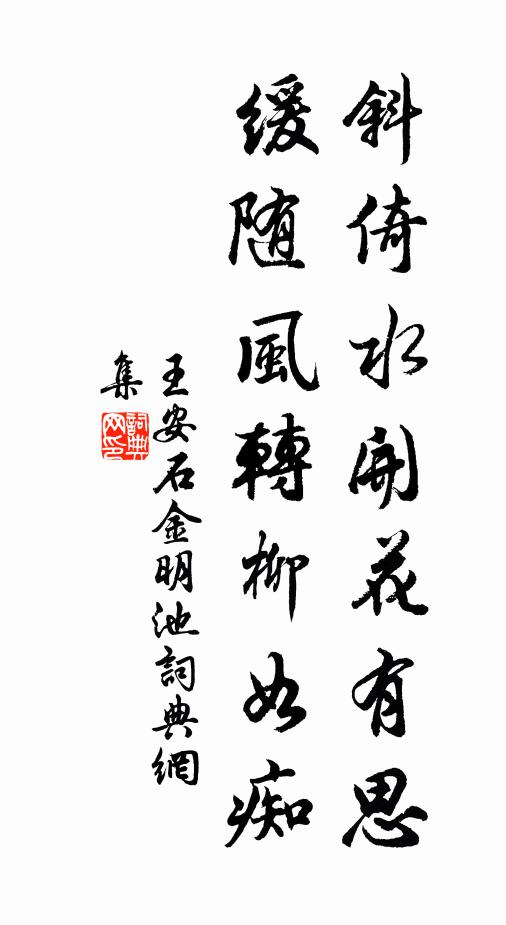 斜倚水開花有思
缓随風轉柳如痴
王安石金明池詞典網
集
詞典网印